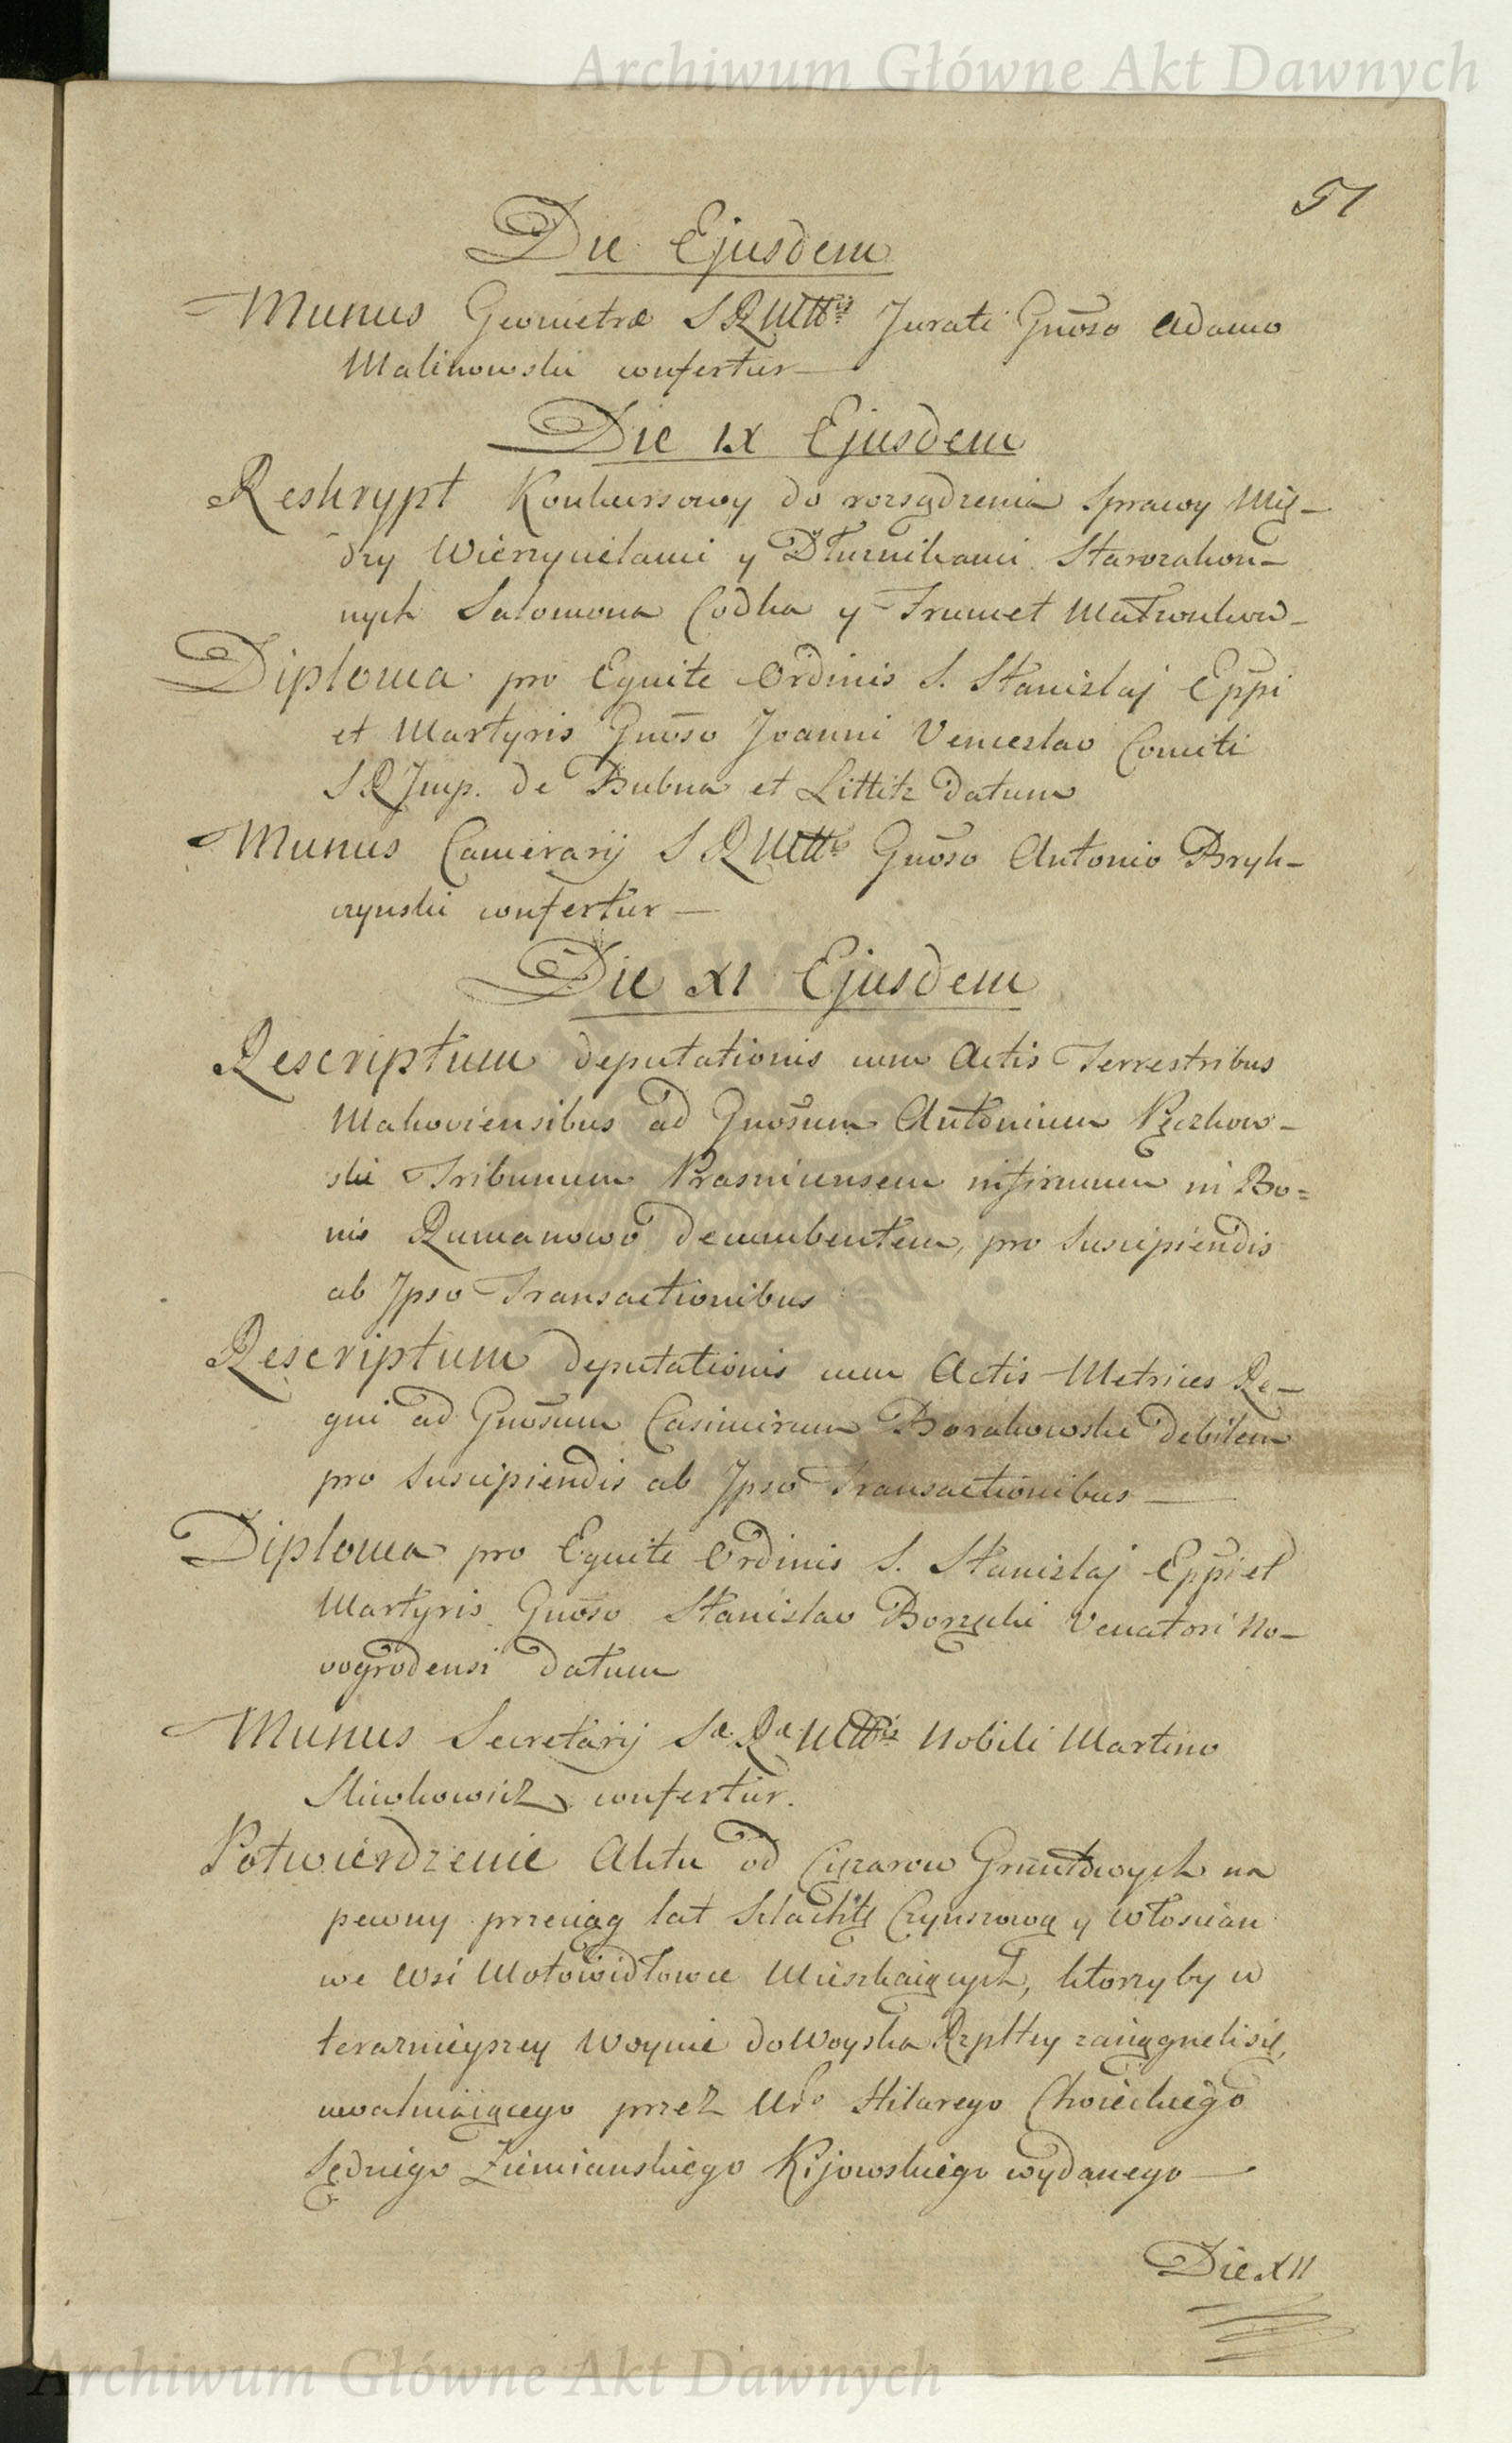 Archiwum Główne Akt Dawnych
51
Die Ejusdem
Munus Geometræ S R Mttis Jurati Gnoso Adamo
Malinowski confertur
Die IX Ejusdem
Reskrypt Konkursowy do rozsądzenia Sprawy Mię-
dzy Wierzycielami y Dłużnikami Starozakon-
nych Salomona Codka y Frumet Małżonków
Diploma pro Equite Ordinis S. Stanislaj Eppi
et Martyris Gnoso Joanni Venceslao Comiti
S R Imp. de Bubna et Littitz datum
Munus Camerarij S R Mttis Gnoso Antonio Bryk-
czynski confertur
Die XI Ejusdem
Rescriptum deputationis cum Actis Terrestribus
Makoviensibus ad Gnosum Antonium Pęczkow-
ski Tribunum Prasnicensem infirmum in Bo=
nis Rumanowo decumbentem, pro suscipiendis
ab Ipso Transactionibus
Rescriptum deputationis cum Actis Metrices Re-
gni ad Gnosum Casimirum Borakowski debilem
pro suscipiendis ab Ipso Transactionibus
Diploma pro Equite Ordinis S. Stanislaj Eppi et
Martyris Gnoso Stanislao Borzęcki Venatori No-
vogrodensi datum
Munus Secretarij Sæ Ræ Mttis Nobili Martino
confertur.
Potwierdzenie Aktu od Ciężarow Gruntowych na
pewny przeciąg lat Szlachtę Czynszową y Włoscian
we Wsi Motowidłowce Mieszkaiących, ktorzyby w
terazniejszey Woynie do Woyska Rzpltey zaciągneli się,
uwalniaiącego przez Uro Hilarego Choieckiego
Sędziego Ziemianskiego Kijowskiego wydanego
Die XII
Archiwum Główne Akt Dawnych